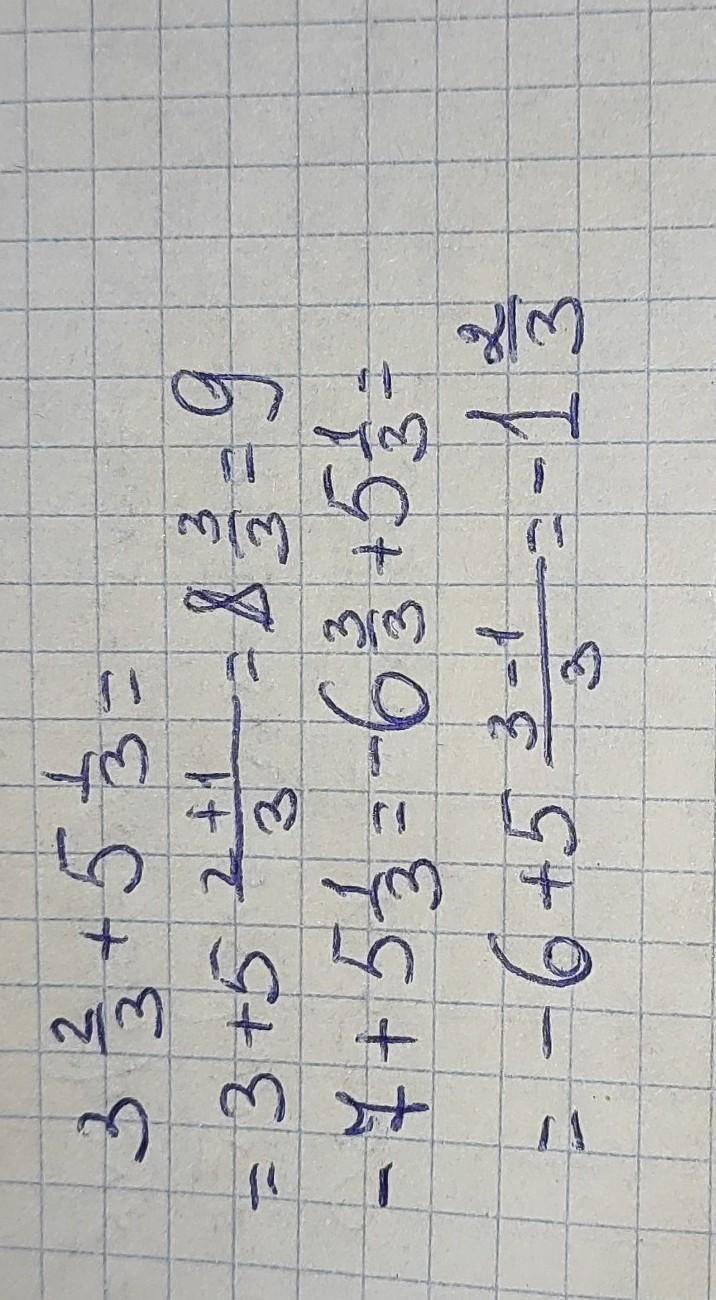 3 2/3 + 5 1/3 =
= 3 + 5 (2+1)/3 = 8 3/3 = 9
- 7 + 5 1/3 = - 6 3/3 + 5 1/3 =
= - 6 + 5 (3-1)/3 = - 1 2/3